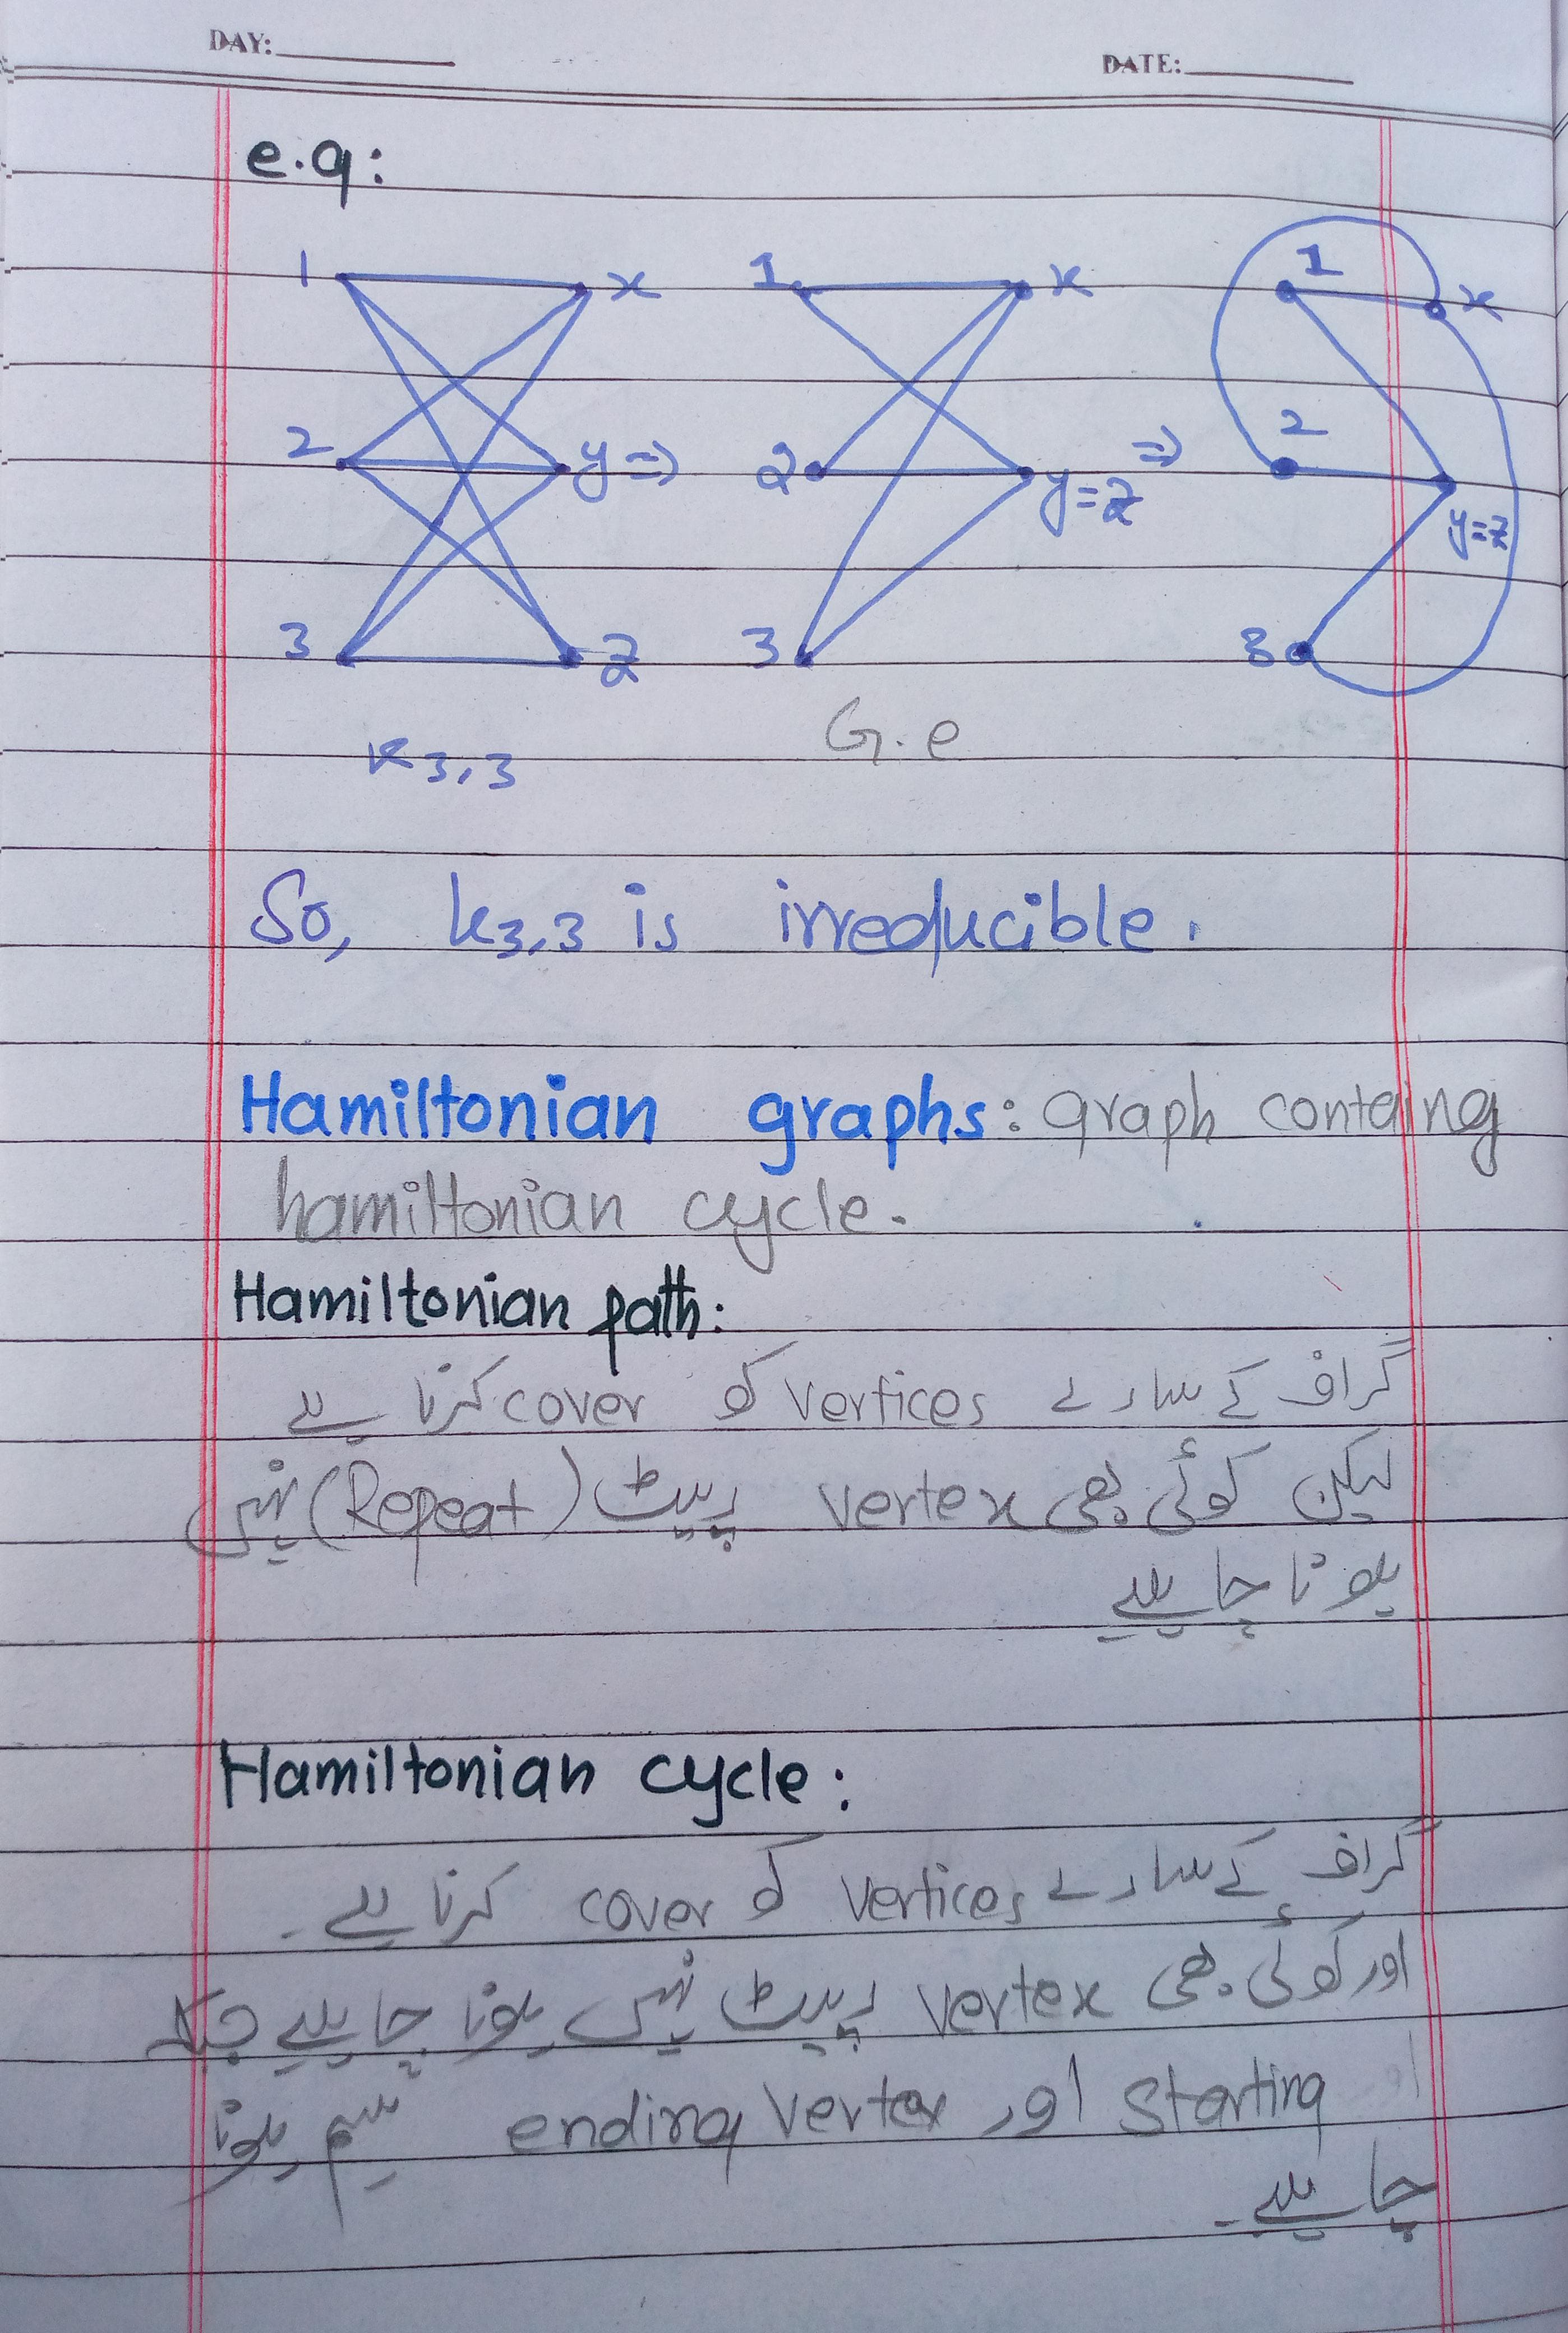 DAY:
DATE:
e.g:
1 x 1 x 1 x
2 y => 2 y=z => 2 y=z
3 z 3 3
K3,3 G.e
So, K3,3 is irreducible.
Hamiltonian graphs: graph containg
hamiltonian cycle.
Hamiltonian path:
گراف کے سارے vertices کو cover کرنا ہے
لیکن کوئی بھی vertex رپیٹ (Repeat) نہیں
ہونا چاہیے
Hamiltonian cycle:
گراف کے سارے vertices کو cover کرنا ہے۔
اور کوئی بھی vertex رپیٹ نہیں ہونا چاہیے جبکہ
starting اور ending vertex سیم ہونا
چاہیے۔